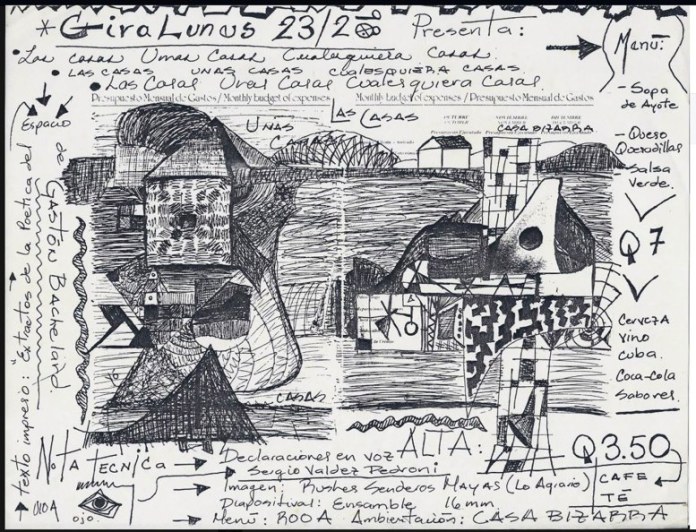 *GiraLunas 23/2 Presenta:
Las casas Unas Casas Cualesquiera Casas
LAS CASAS UNAS CASAS CUALESQUIERA CASAS
Las Casas Unas Casas Cualesquiera Casas
Presupuesto Mensual de Gastos / Monthly budget of expenses
Monthly budget of expenses / Presupuesto Mensual de Gastos
LAS CASAS
UNAS CASAS
CASA BIZARRA
CASAS
Menú:
- Sopa de Ayote
- Queso Quesadillas
- Salsa Verde.
Q7
Cerveza
vino
cuba.
Coca-Cola
Sabores.
Q3.50
CAFE
TÉ
Espacio
texto impreso: "Extractos de la Poetica del
de GASTON Bachelard
Nota tecnica
ojo.
Declaraciones en voz ALTA:
Sergio Valdez Pedroni
Imagen: Rushes Senderos Mayas (Lo Agrario)
Diapositiva: Ensamble 16 mm
Menú: ROOA Ambientación: CASA BIZARRA